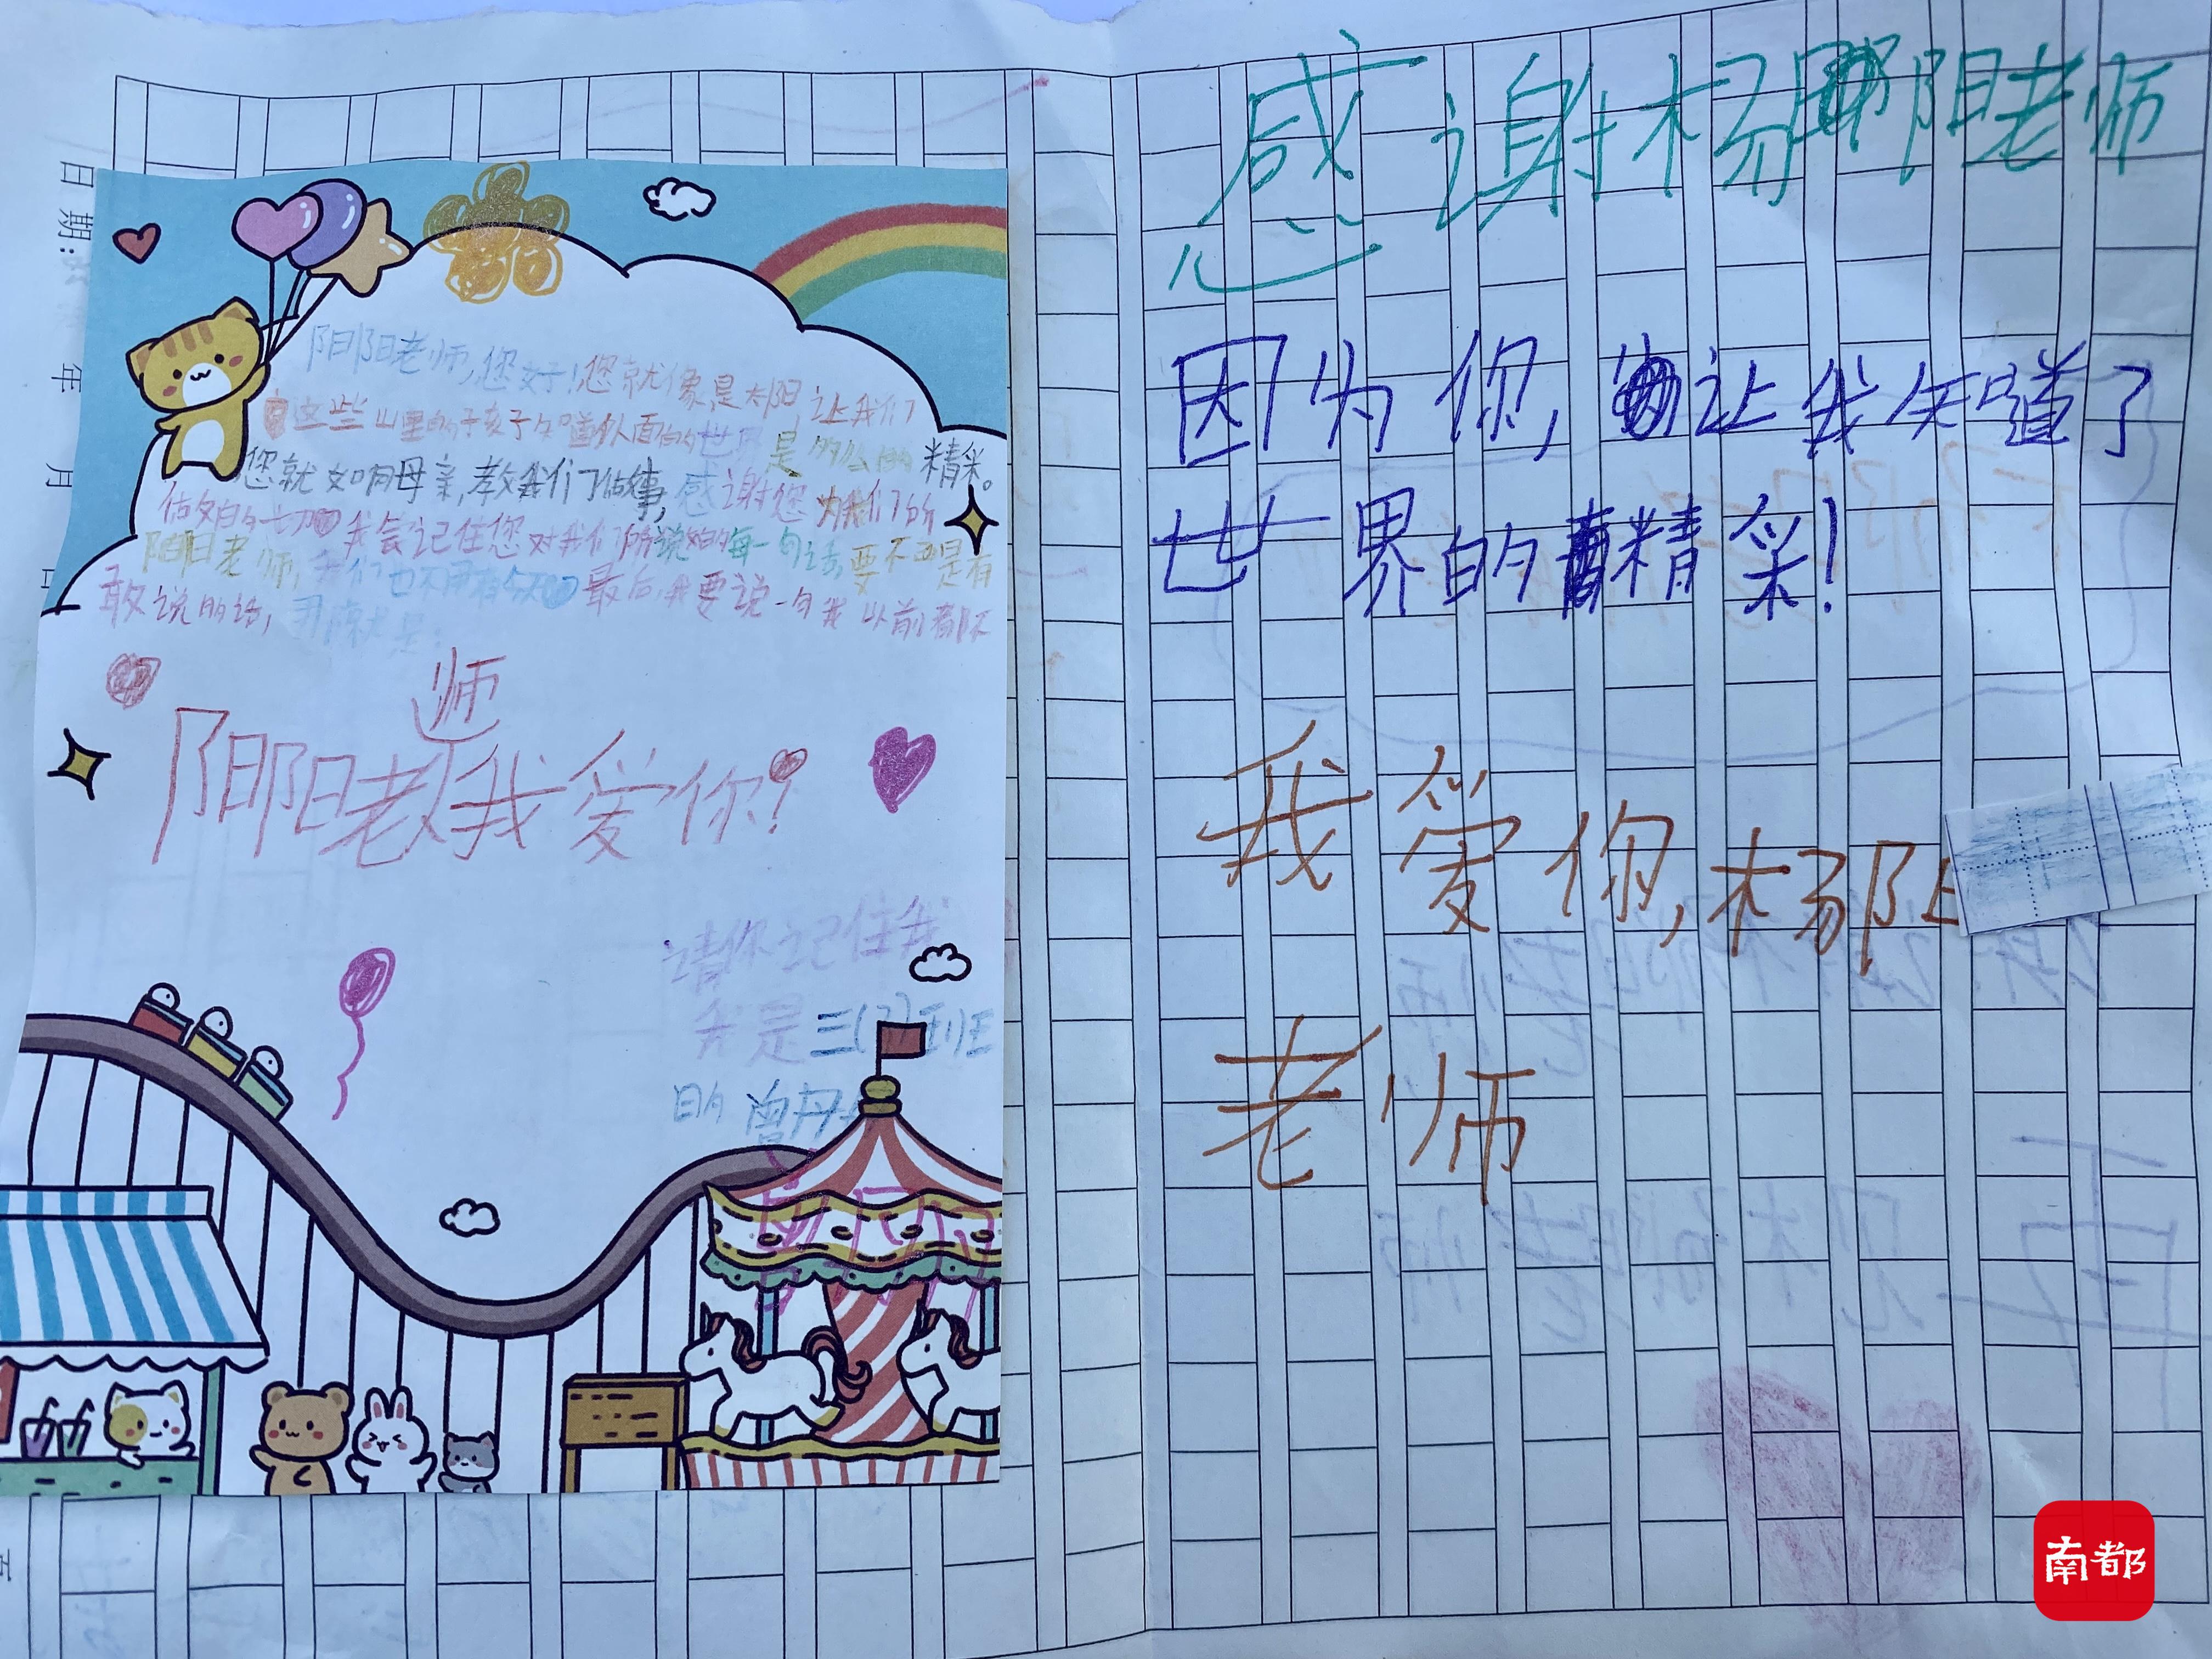 日期：
年
月
日
阳阳老师,您好!您就像是太阳,让我们
这些山里的子孩子知道外面的世界是多么的精采。
您就如同母亲,教我们了做事,感谢您为我们所
做的一切 我会记住您对我们所说的每一句话,要不是有
阳阳老师,我们也不可能有今天 最后,我要说一句我以前都不
敢说的话,那就是:
阳阳老师我爱你!
请你记住我
我是三(7)班
的曾丹
感谢杨阳老师
因为你,让我知道了
世界的精采!
我爱你,杨阳
老师
南都